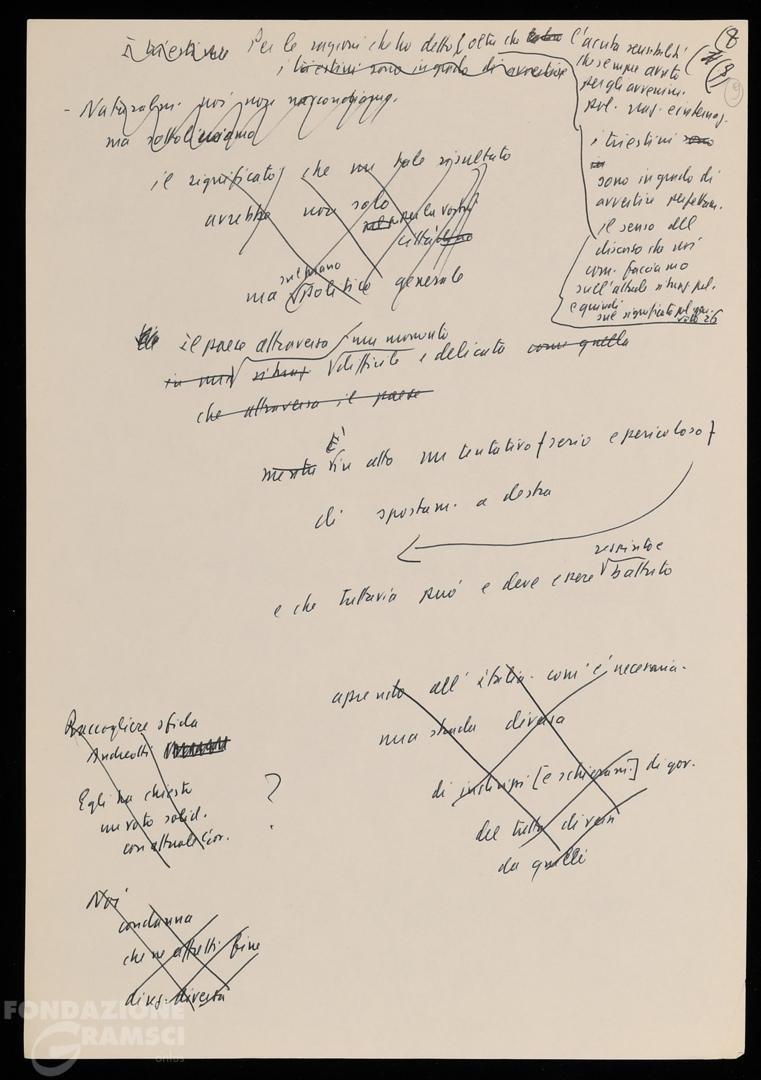 i triestini Per le ragioni che ho detto, oltre che l'acuta sensibilità
i triestini sono in grado di avvertire
che sempre avuto
per gli avvenim.
pol. naz. e internaz.
i triestini sono
in
sono in grado di
avvertire perfettam.
il senso del
discorso che noi
com. facciamo
sull'attuale situaz. pol.
e quindi
sul significato pol. gen.
voto 26
8
9
- Naturalm. noi non nascondiamo,
ma sottolineiamo
il significato che un tale risultato
avrebbe non solo
per la vostra
città
sul piano
ma politico generale
il paese attraversa un momento
in una situaz. difficile e delicato come quella
che attraversa il paese
È
in atto un tentativo serio e pericoloso
di spostam. a destra
respinto e
e che tuttavia può e deve essere battuto
aprendo all'Italia - com'è necessario -
una strada diversa
di indirizzi [e schieram.] di gov.
del tutto diversi
da quelli
Raccogliere sfida
Andreotti
Egli ha chiesto
un voto solid.
con attuale Gov.
?
Noi
condanna
che ne affretti fine
direz. diversa
FONDAZIONE
GRAMSCI
onlus